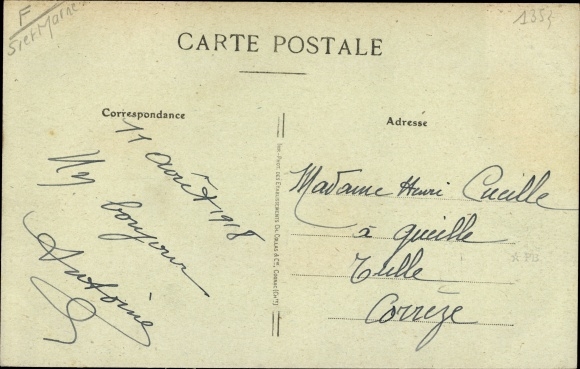 F
S et Marne
1353
CARTE POSTALE
Correspondance
Adresse
11 août 1918
Un bonjour
Antoine
IMP. PHOT. DES ETABLISSEMENTS CH. COLLAS & Cie, COGNAC (Chte)
Madame Henri Cueille
à Queille
Tulle
Corrèze